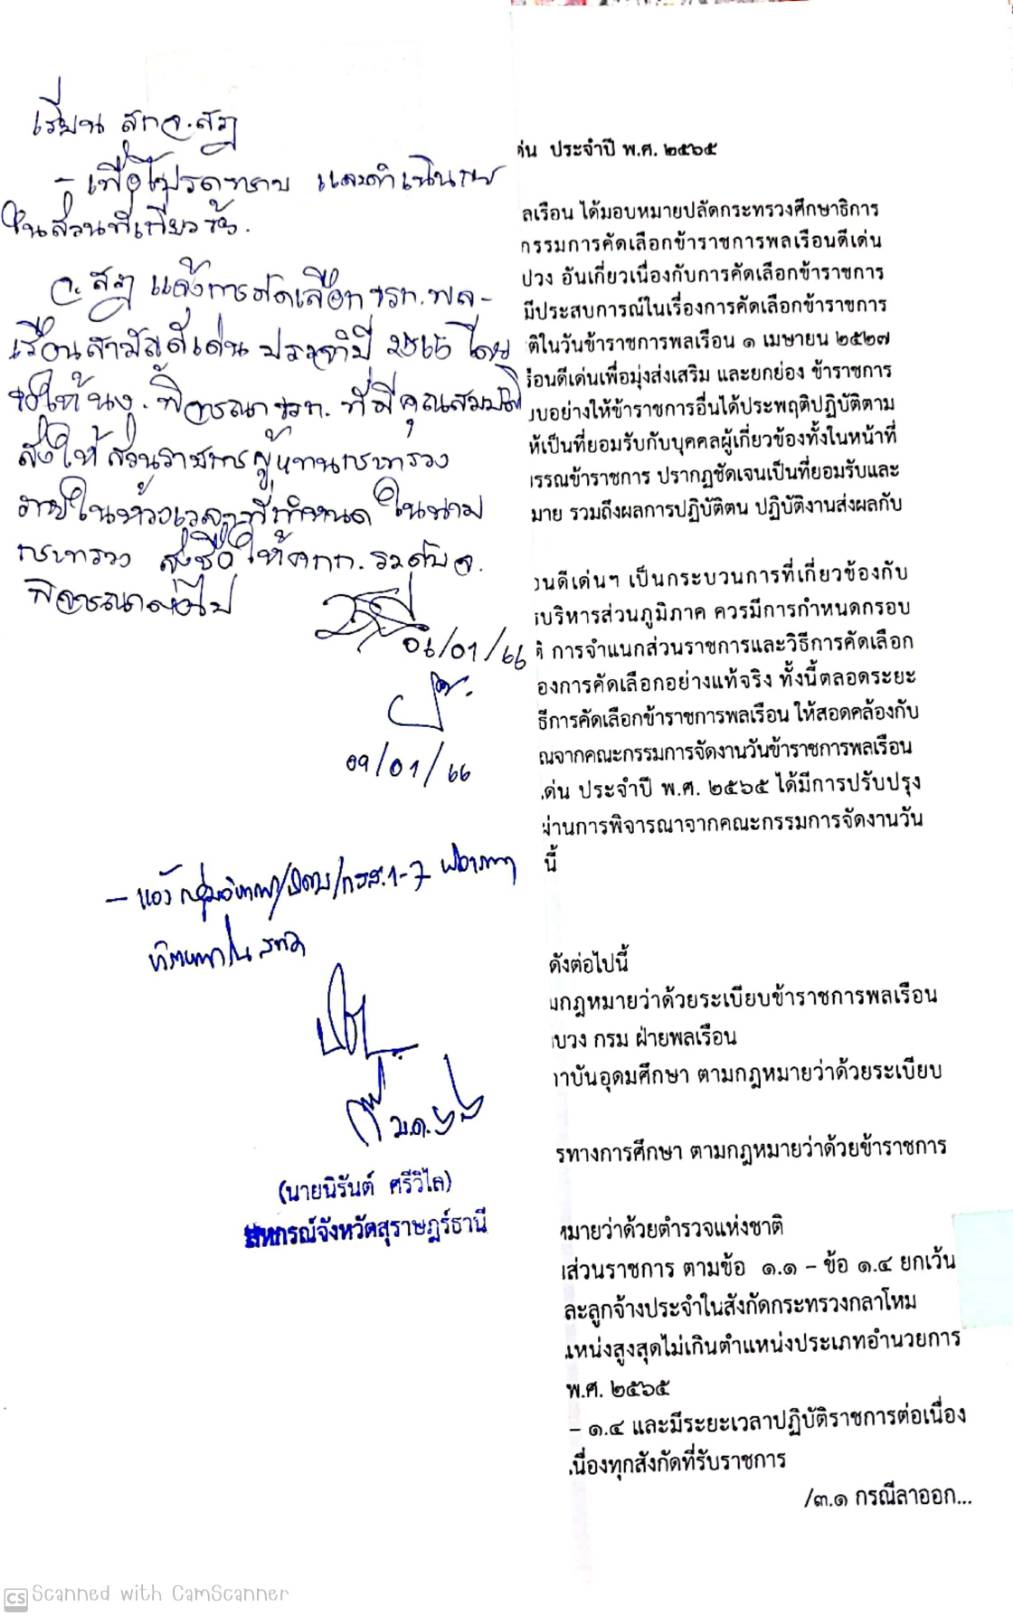 เรียน สกจ.สฎ
- เพื่อโปรดทราบ และดำเนินการ
ในส่วนที่เกี่ยวข้อง.
จ. สฎ แจ้งการคัดเลือก ขรก. พล-
เรือนสามัญดีเด่น ประจำปี 2565 โดย
ขอให้ นง. พิจารณา ขรก. ที่มีคุณสมบัติ
ส่งให้ ส่วนราชการผู้แทนกระทรวง
ภายในห้วงเวลาที่กำหนด ในนาม
กระทรวง ส่งชื่อ ให้ คกก. ระดับ จ.
พิจารณาต่อไป
06/01/66
09/01/66
- แจ้ง กลุ่มวิชาการ/ /กสส.1-7
ม.ค. ๖๖
(นายนิรันต์ ศรีวิไล)
สหกรณ์จังหวัดสุราษฎร์ธานี
ด่น ประจำปี พ.ศ. ๒๕๖๕
ลเรือน ได้มอบหมายปลัดกระทรวงศึกษาธิการ
กรรมการคัดเลือกข้าราชการพลเรือนดีเด่น
ปวง อันเกี่ยวเนื่องกับการคัดเลือกข้าราชการ
มีประสบการณ์ในเรื่องการคัดเลือกข้าราชการ
ติในวันข้าราชการพลเรือน ๑ เมษายน ๒๕๒๗
รือนดีเด่นเพื่อมุ่งส่งเสริม และยกย่อง ข้าราชการ
บบอย่างให้ข้าราชการอื่นได้ประพฤติปฏิบัติตาม
ห้เป็นที่ยอมรับกับบุคคลผู้เกี่ยวข้องทั้งในหน้าที่
รรณข้าราชการ ปรากฏชัดเจนเป็นที่ยอมรับและ
มาย รวมถึงผลการปฏิบัติตน ปฏิบัติงานส่งผลกับ
อนดีเด่นฯ เป็นกระบวนการที่เกี่ยวข้องกับ
รบริหารส่วนภูมิภาค ควรมีการกำหนดกรอบ
ติ การจำแนกส่วนราชการและวิธีการคัดเลือก
องการคัดเลือกอย่างแท้จริง ทั้งนี้ตลอดระยะ
ธีการคัดเลือกข้าราชการพลเรือน ให้สอดคล้องกับ
ณจากคณะกรรมการจัดงานวันข้าราชการพลเรือน
เด่น ประจำปี พ.ศ. ๒๕๖๕ ได้มีการปรับปรุง
ผ่านการพิจารณาจากคณะกรรมการจัดงานวัน
นี้
ดังต่อไปนี้
มกฎหมายว่าด้วยระเบียบข้าราชการพลเรือน
บวง กรม ฝ่ายพลเรือน
าบันอุดมศึกษา ตามกฎหมายว่าด้วยระเบียบ
รทางการศึกษา ตามกฎหมายว่าด้วยข้าราชการ
หมายว่าด้วยตำรวจแห่งชาติ
นส่วนราชการ ตามข้อ ๑.๑ – ข้อ ๑.๔ ยกเว้น
ละลูกจ้างประจำในสังกัดกระทรวงกลาโหม
แหน่งสูงสุดไม่เกินตำแหน่งประเภทอำนวยการ
พ.ศ. ๒๕๖๕
– ๑.๔ และมีระยะเวลาปฏิบัติราชการต่อเนื่อง
เนื่องทุกสังกัดที่รับราชการ
/๓.๑ กรณีลาออก...
CS Scanned with CamScanner